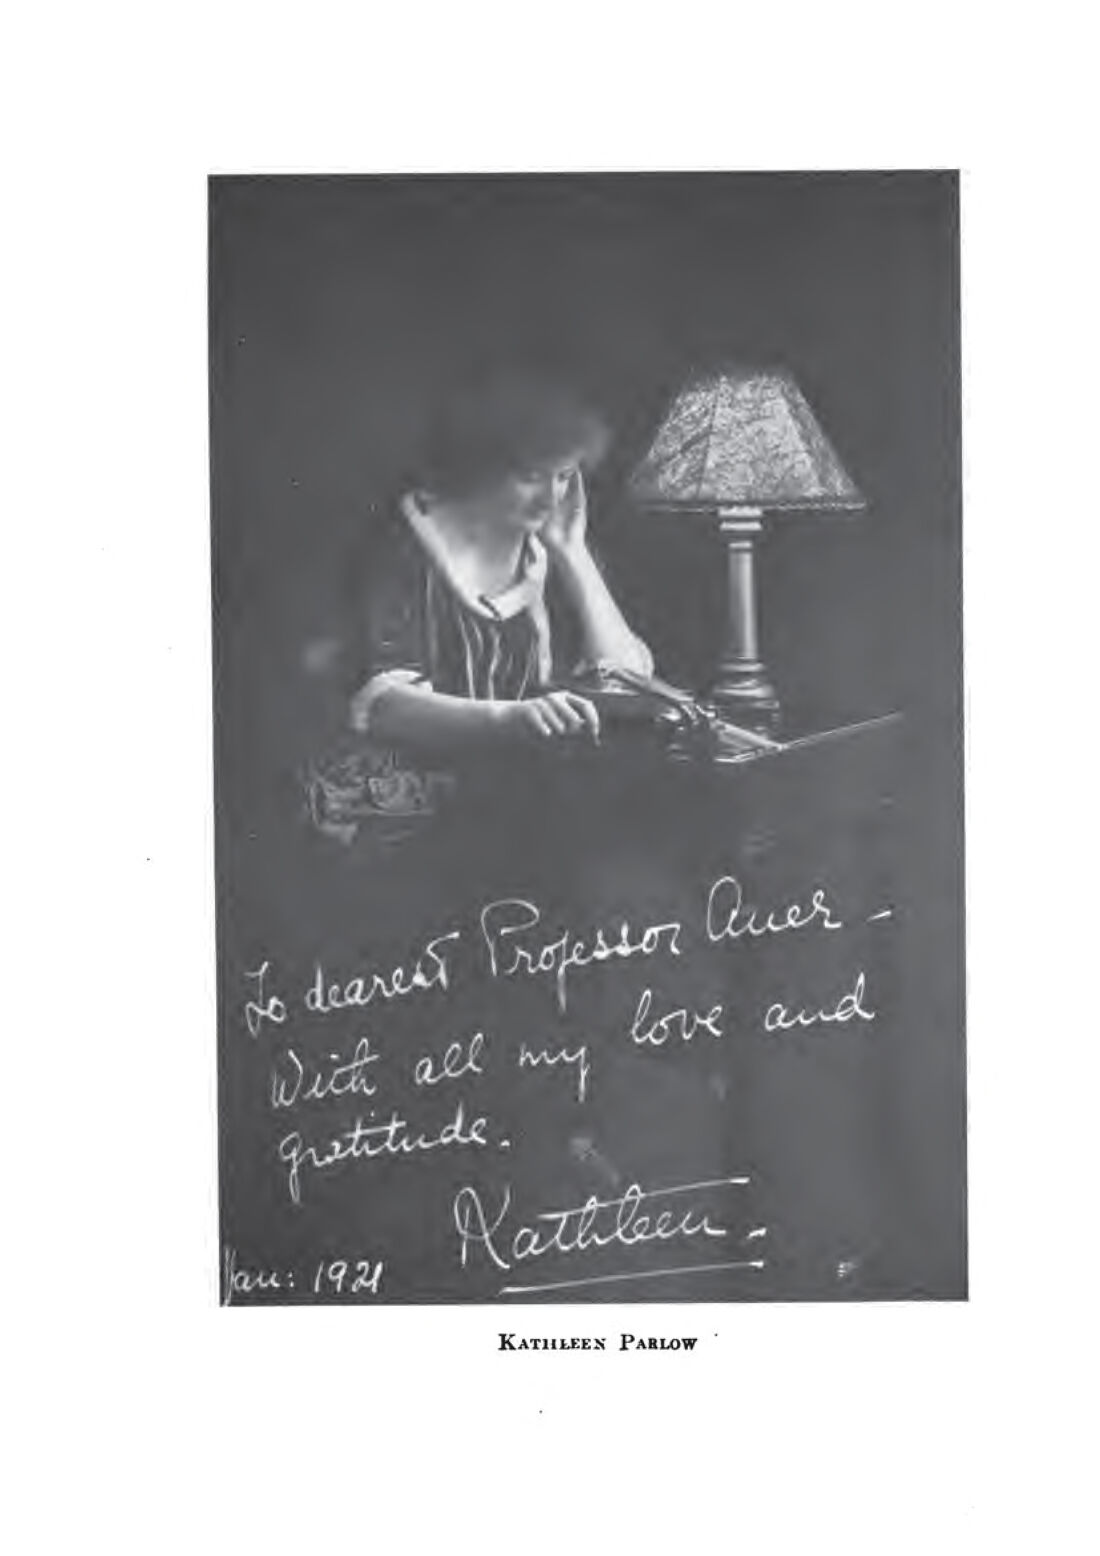 To dearest Professor Auer -
With all my love and
gratitude.
Kathleen -
Jan: 1921
KATHLEEN PARLOW